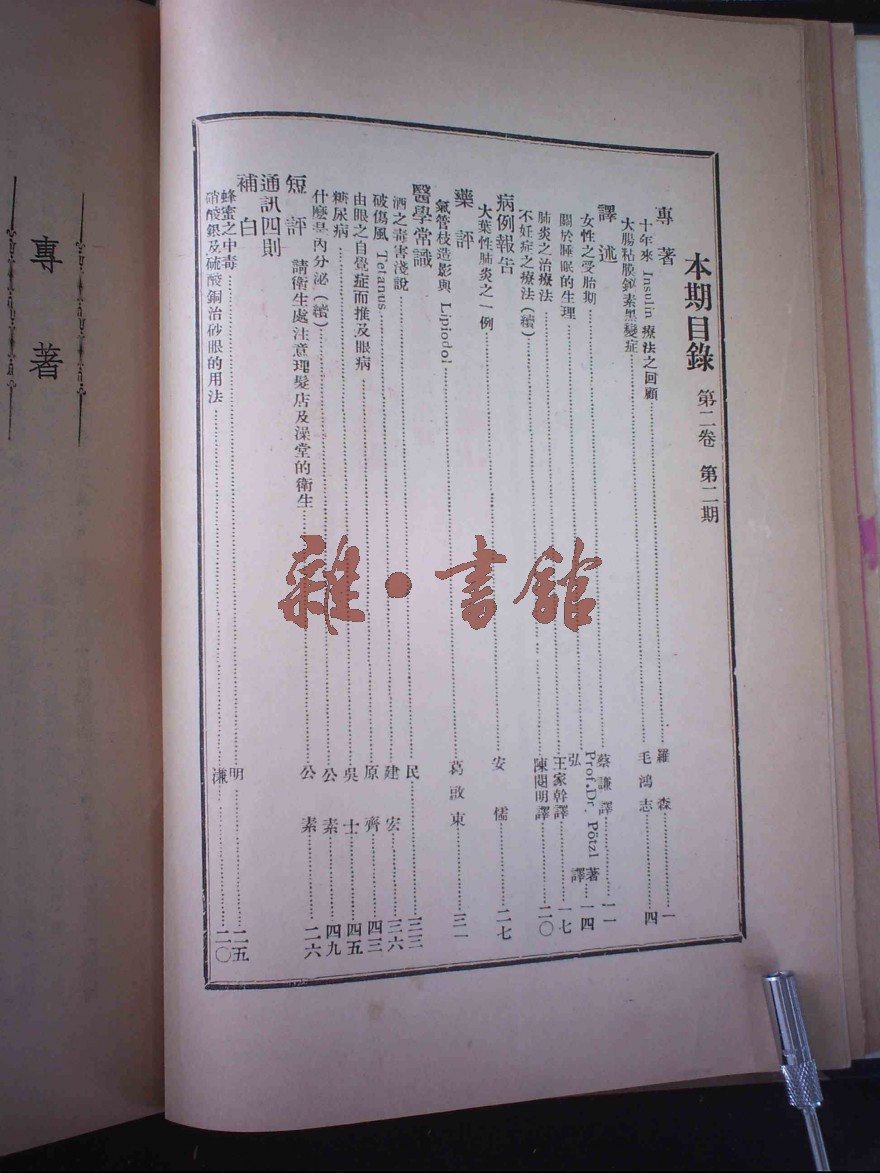 本期目錄 第二卷 第二期
專著
十年來 Insulin 療法之回顧 羅森 一
大腸粘膜鉍素黑變症 毛鴻志 四
譯述
女性之受胎期 蔡謙譯 一一
關於睡眠的生理 Prof. Dr. Pötzl 著 弘譯 一四
肺炎之治療法 王家幹譯 一七
不妊症之療法(續) 陳閱明譯 二〇
病例報告
大葉性肺炎之一例 安儒 二七
藥評
氣管枝造影與 Lipiodol 葛啟東 三一
醫學常識
酒之毒害淺說 民 三三
破傷風 Tetanus 建宏 三六
由眼之自覺症而推及眼病 原齊 四三
糖尿病 吳士 四五
什麼是內分泌(續) 公素 四九
短評 請衛生處注意理髮店及澡堂的衛生 公素 二六
通訊四則
補白
蜂蜜之中毒 明 二五
硝酸銀及硫酸銅治砂眼的用法 溓 二〇
專著
雜·書館